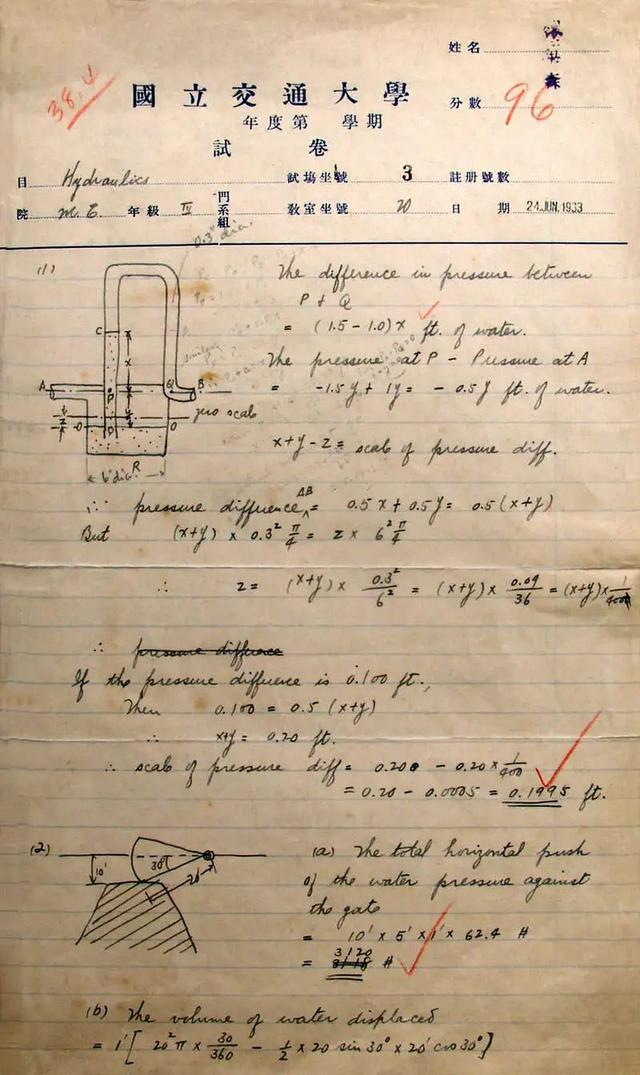 姓名
38.4
國立交通大學
分數 96
年度第 學期
試卷
目 Hydraulics 試場坐號 3 註册號數
院 M. E. 年級 IV 門系組 教室坐號 20 日期 24 JUN. 1933
0.3" dia.
(1)
The difference in pressure between
P + Q
= (1.5 - 1.0) x ft. of water.
The pressure at P - Pressure at A
= -1.5 y + 1y = - 0.5 y ft. of water.
C
A
P
Q
B
zero scale
O
O
R
6" dia.
x + y - z = scale of pressure diff.
∴ pressure difference AB = 0.5 x + 0.5 y = 0.5 (x+y)
But (x+y) × 0.3² π/4 = z × 6² π/4
∴ z = (x+y) × 0.3²/6² = (x+y) × 0.09/36 = (x+y) × 1/400
∴ pressure difference
If the pressure difference is 0.100 ft.,
Then 0.100 = 0.5 (x+y)
∴ x+y = 0.20 ft.
∴ scale of pressure diff = 0.200 - 0.20 × 1/400
= 0.20 - 0.0005 = 0.1995 ft.
(2)
10'
30°
20'
(a) The total horizontal push
of the water pressure against
the gate
= 10' × 5' × 1' × 62.4 #
= 3120 #
(b) The volume of water displaced
= 1' [ 20² π × 30/360 - 1/2 × 20 sin 30° × 20' cos 30° ]